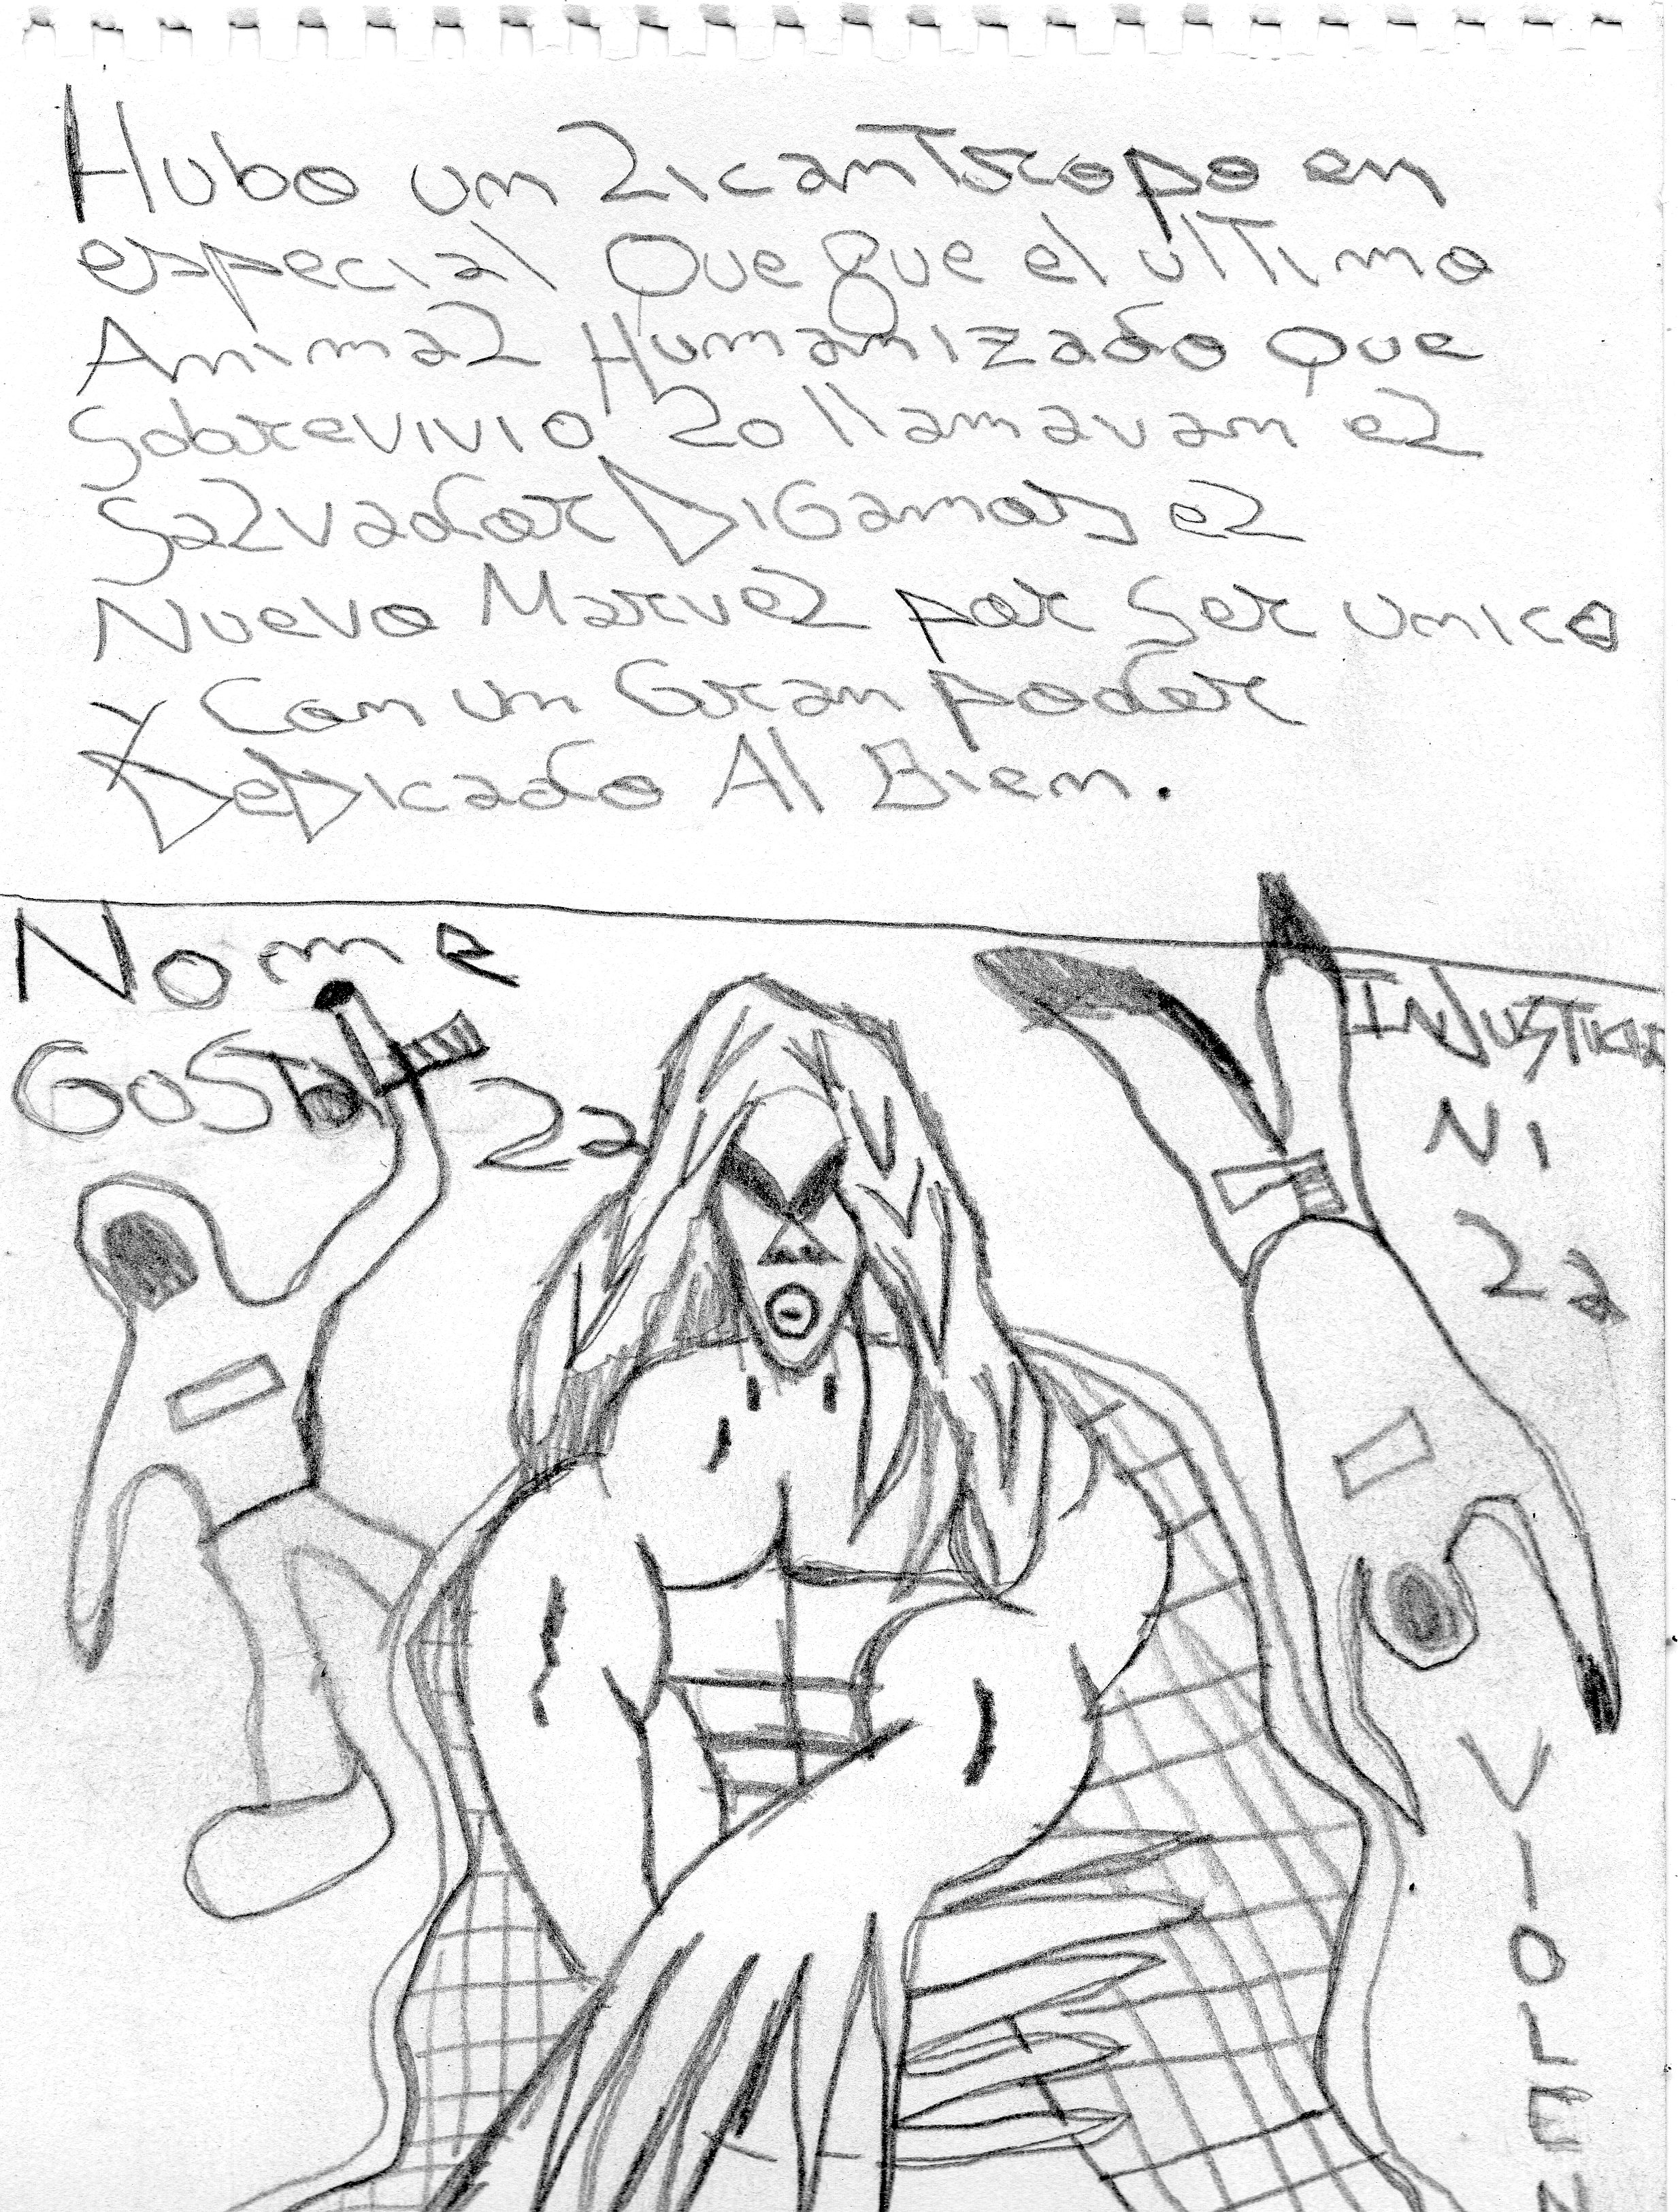 Hubo un Licantropo en
especial Que fue el ultimo
Animal Humanizado Que
Sobrevivio Lo llamavan el
Salvador DiGamos el
Nuevo Marvel por Ser unico
y Con un Gran poder
DeDicado Al Bien.
No me
GoSta La
INJUSTICIA
Ni
La
VIOLEN